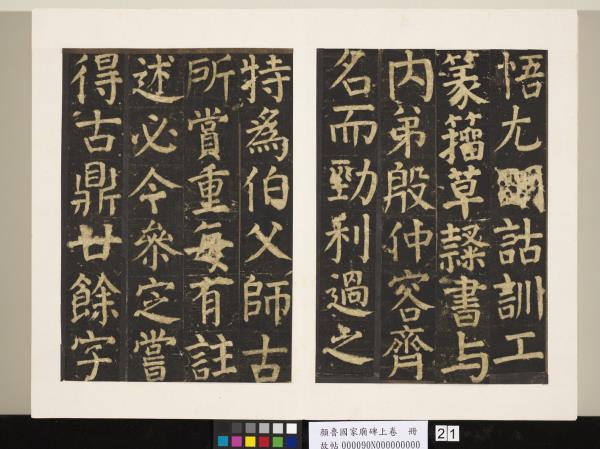 悟尤明詁訓工
篆籒草隸書与
内弟殷仲容齊
名而勁利過之
特為伯父師古
所賞重每有註
述必令叅定嘗
得古鼎廿餘字
顏魯國家廟碑上卷 冊
故帖 000090N000000000
21